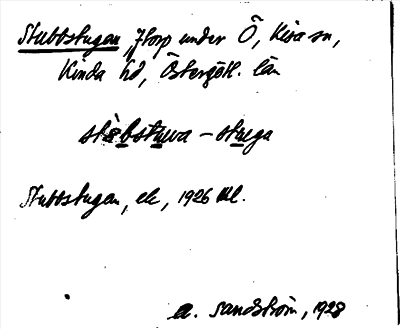 Stubbstugan, Torp under Ö, Kisa sn,
Kinda hd, Östergötl. län
stubstuwa - stuega
Stubbstugan, ek, 1926 Ml.
A. Sandström, 1928